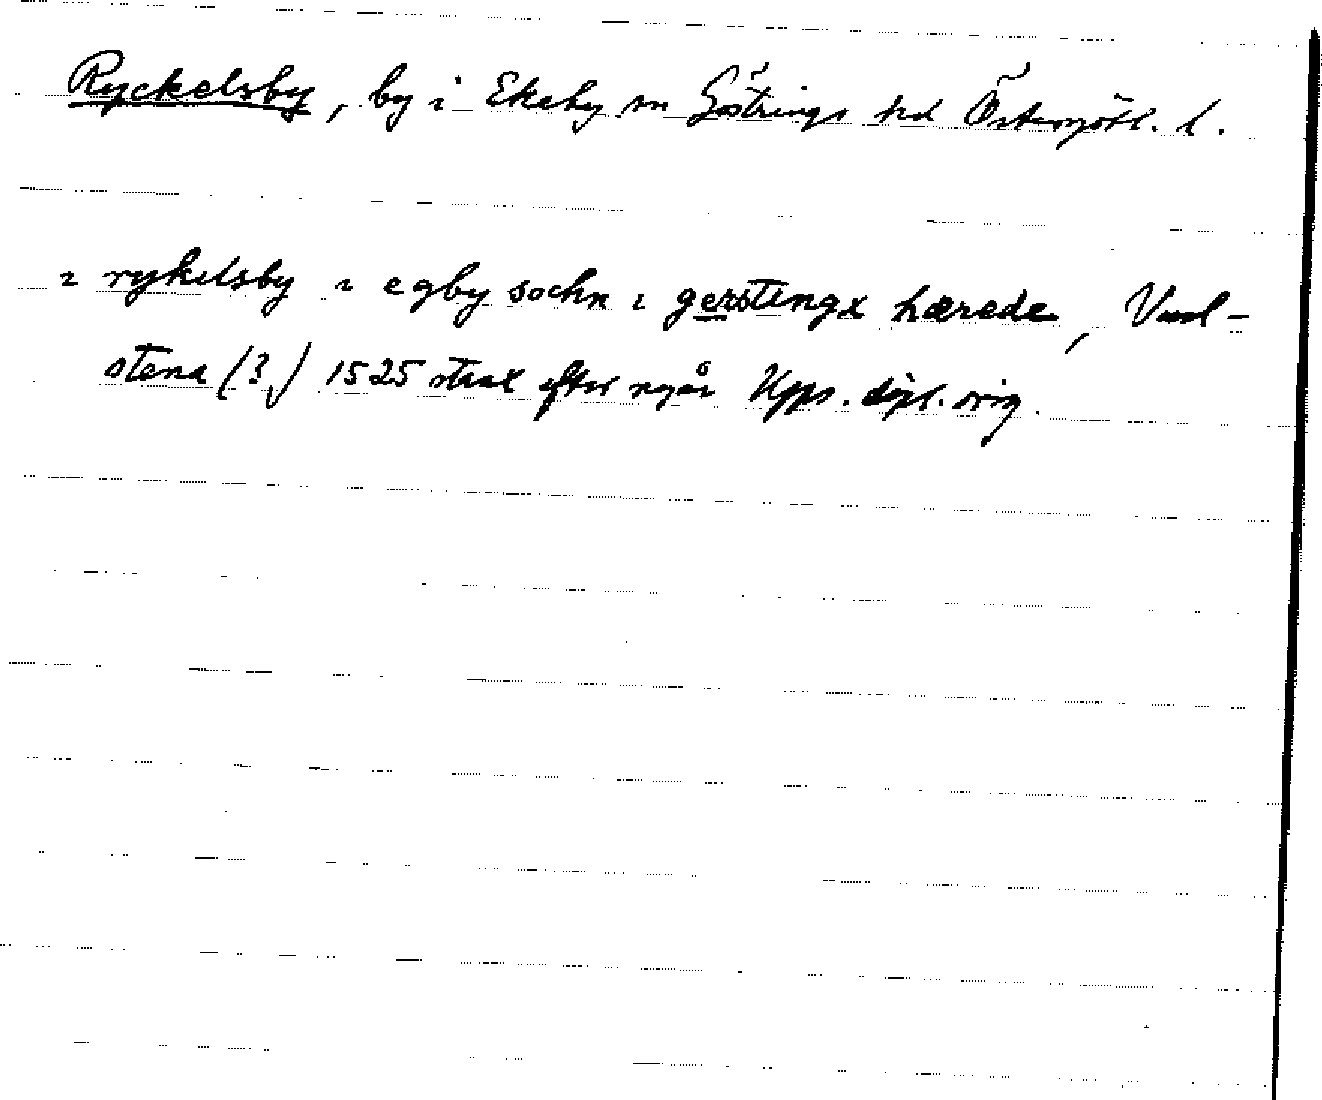 Ryckelsby, by i Ekeby sn Göstrings hd Östergötl. l.
i rykelsby i egby sochn i gerstingx hærede, Vad-
stena (?) 1525 strax efter nyår Upps. dipl. orig.